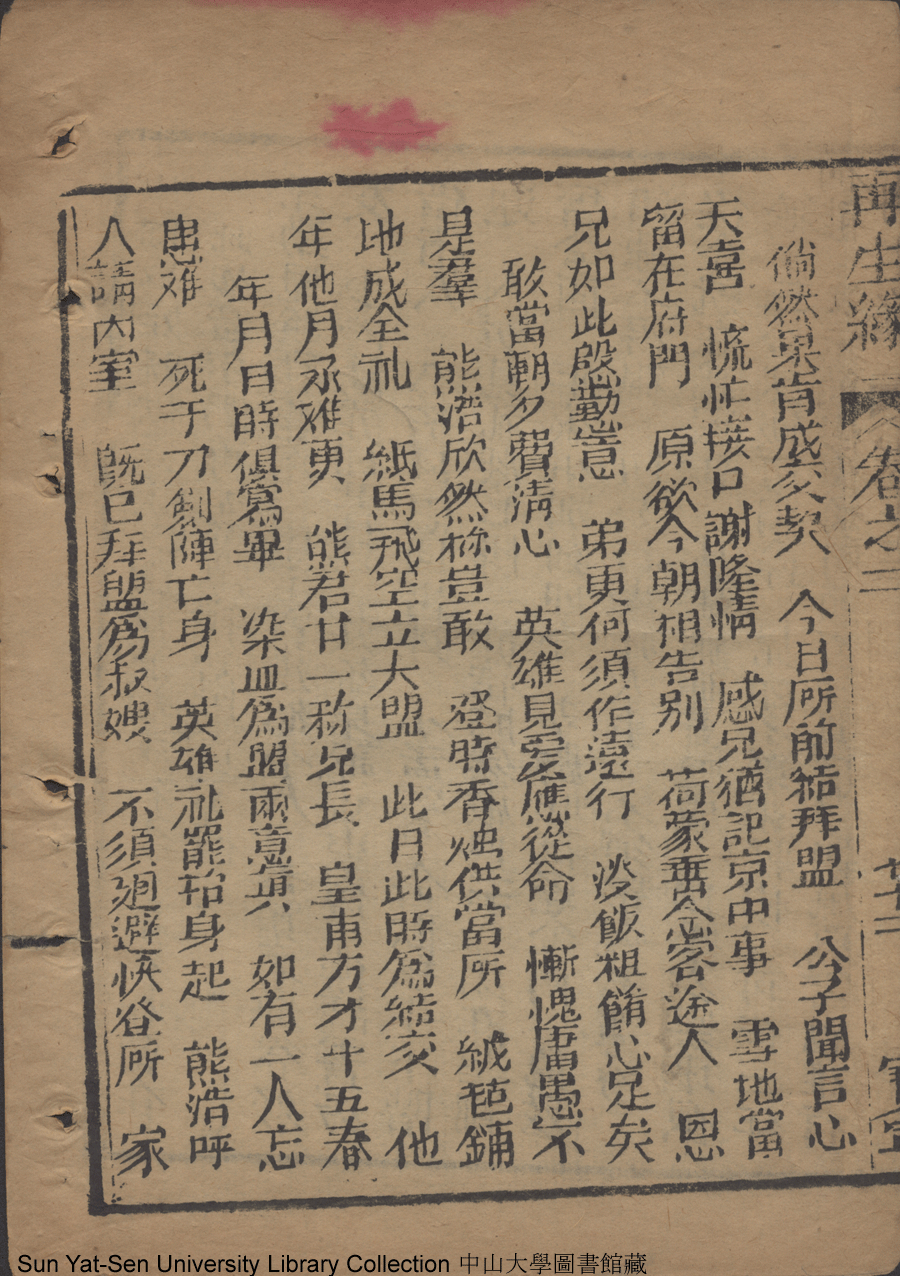 再生緣 卷之二 廿二
倘然果肯成交契 今日所前結拜盟 公子聞言心
天喜 慌忙接口謝隆情 感兄猶記京中事 雪地當
留在府門 原欲今朝相告别 荷蒙垂念客途人 恩
兄如此慇懃意 弟更何須作遠行 淡飯粗餚心足矣
敢當朝夕費清心 英雄見愛應從命 慚愧庸愚不
是羣 熊浩欣然称豈敢 登時香燭供當所 絨毡鋪
地成全礼 紙馬飛空立大盟 此日此時為結交 他
年他月永难更 熊君廿一称兄長 皇甫方才十五春
年月日時俱寫畢 染血為盟兩意真 如有一人忘
患难 死于刀劍陣亡身 英雄礼罷抬身起 熊浩呼
人請內室 既已拜盟為叔嫂 不須廻避快登所 家
Sun Yat-Sen University Library Collection 中山大學圖書館藏